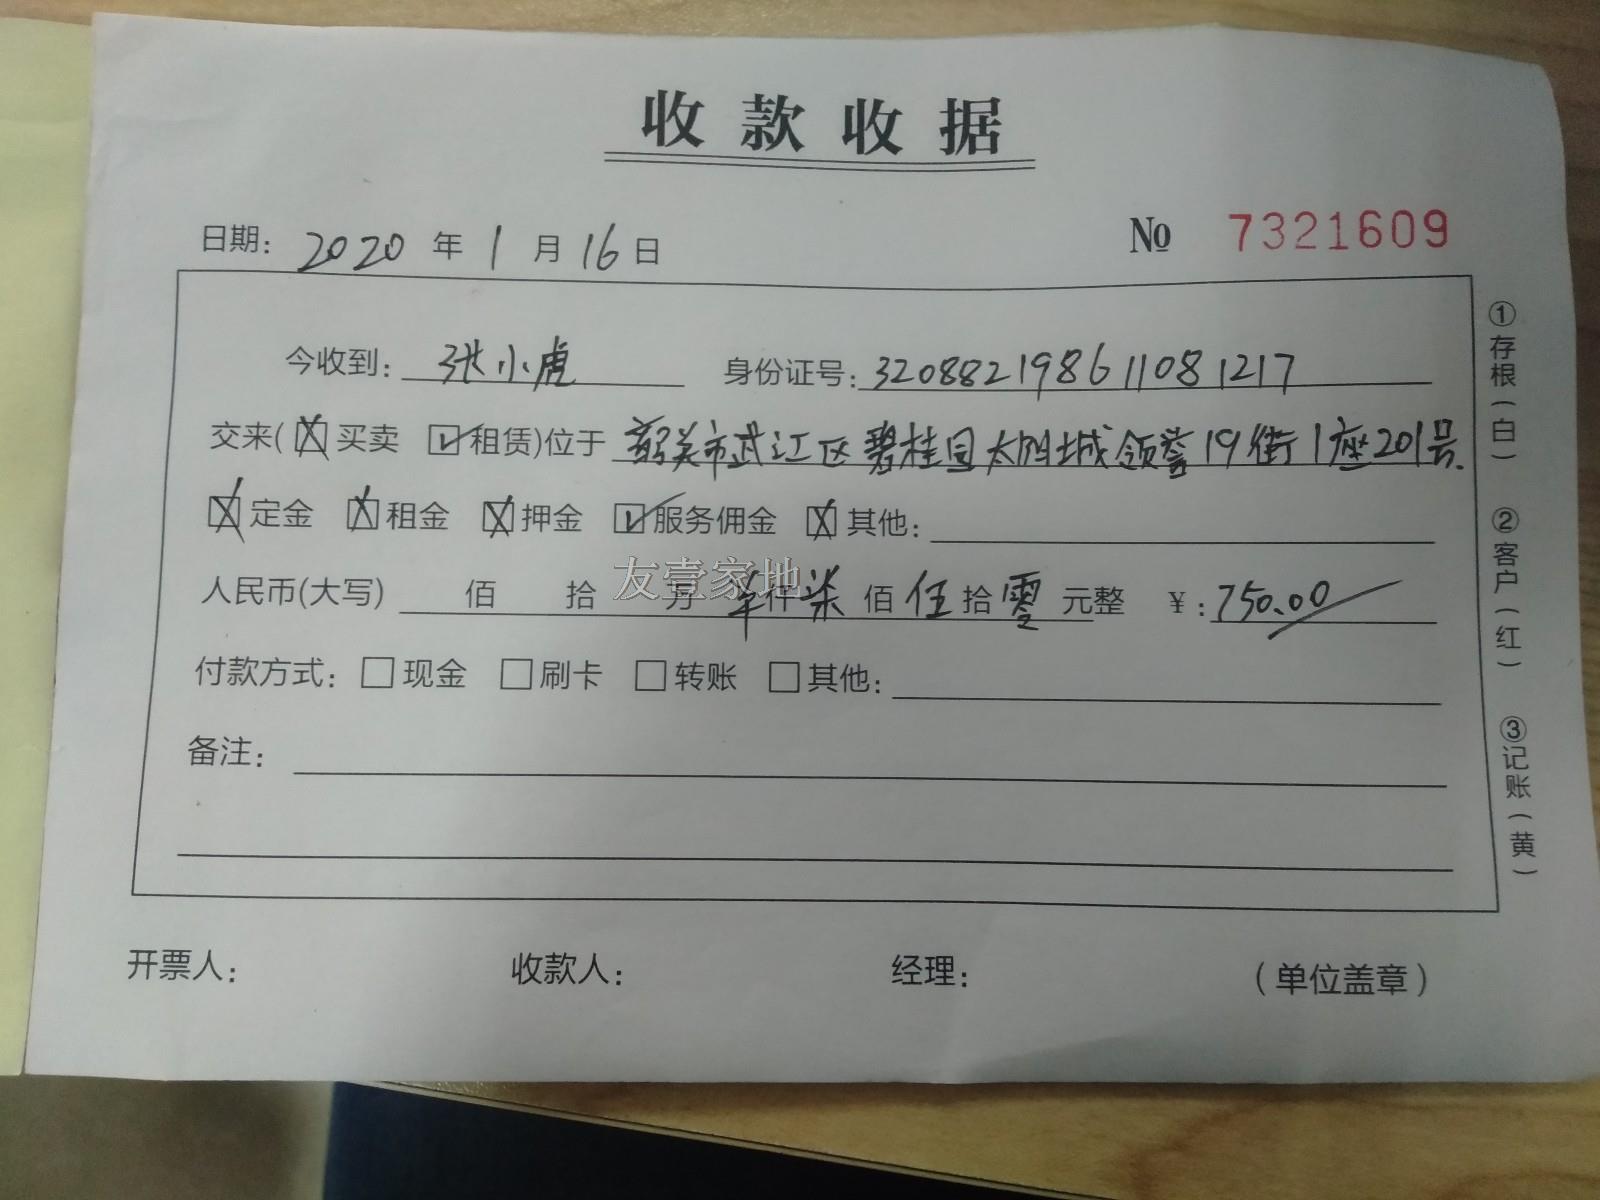 收款收据
日期: 2020 年 1 月 16 日 № 7321609
今收到: 张小虎 身份证号: 320882198611081217
交来(☒买卖 ☑租赁)位于 韶关市武江区碧桂园太阳城领誉19街1座201号.
☒定金 ☒租金 ☒押金 ☑服务佣金 ☒其他:
人民币(大写) 佰 拾 万 仟 柒 佰 伍 拾 零 元整 ¥: 750.00
友壹家地
付款方式: □现金 □刷卡 □转账 □其他:
备注:
开票人: 收款人: 经理: (单位盖章)
①存根(白) ②客户(红) ③记账(黄)